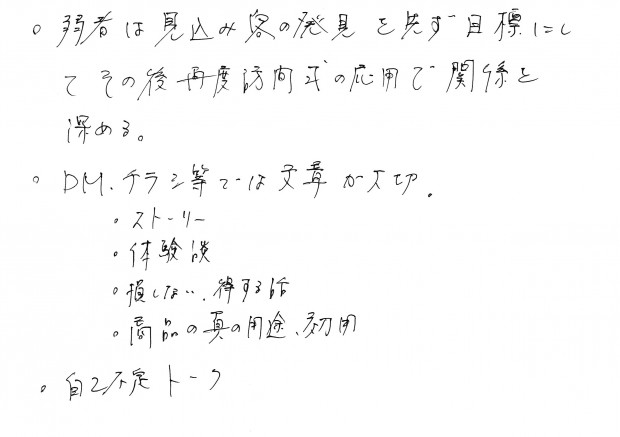 。弱者は見込み客の発見を先ず目標にし
てその後再度訪問式の応用で関係を
深める。
。DM、チラシ等では文章が大切.
・ストーリー
・体験談
・損しない、得する話
・商品の真の用途、利用
・自己否定トーク